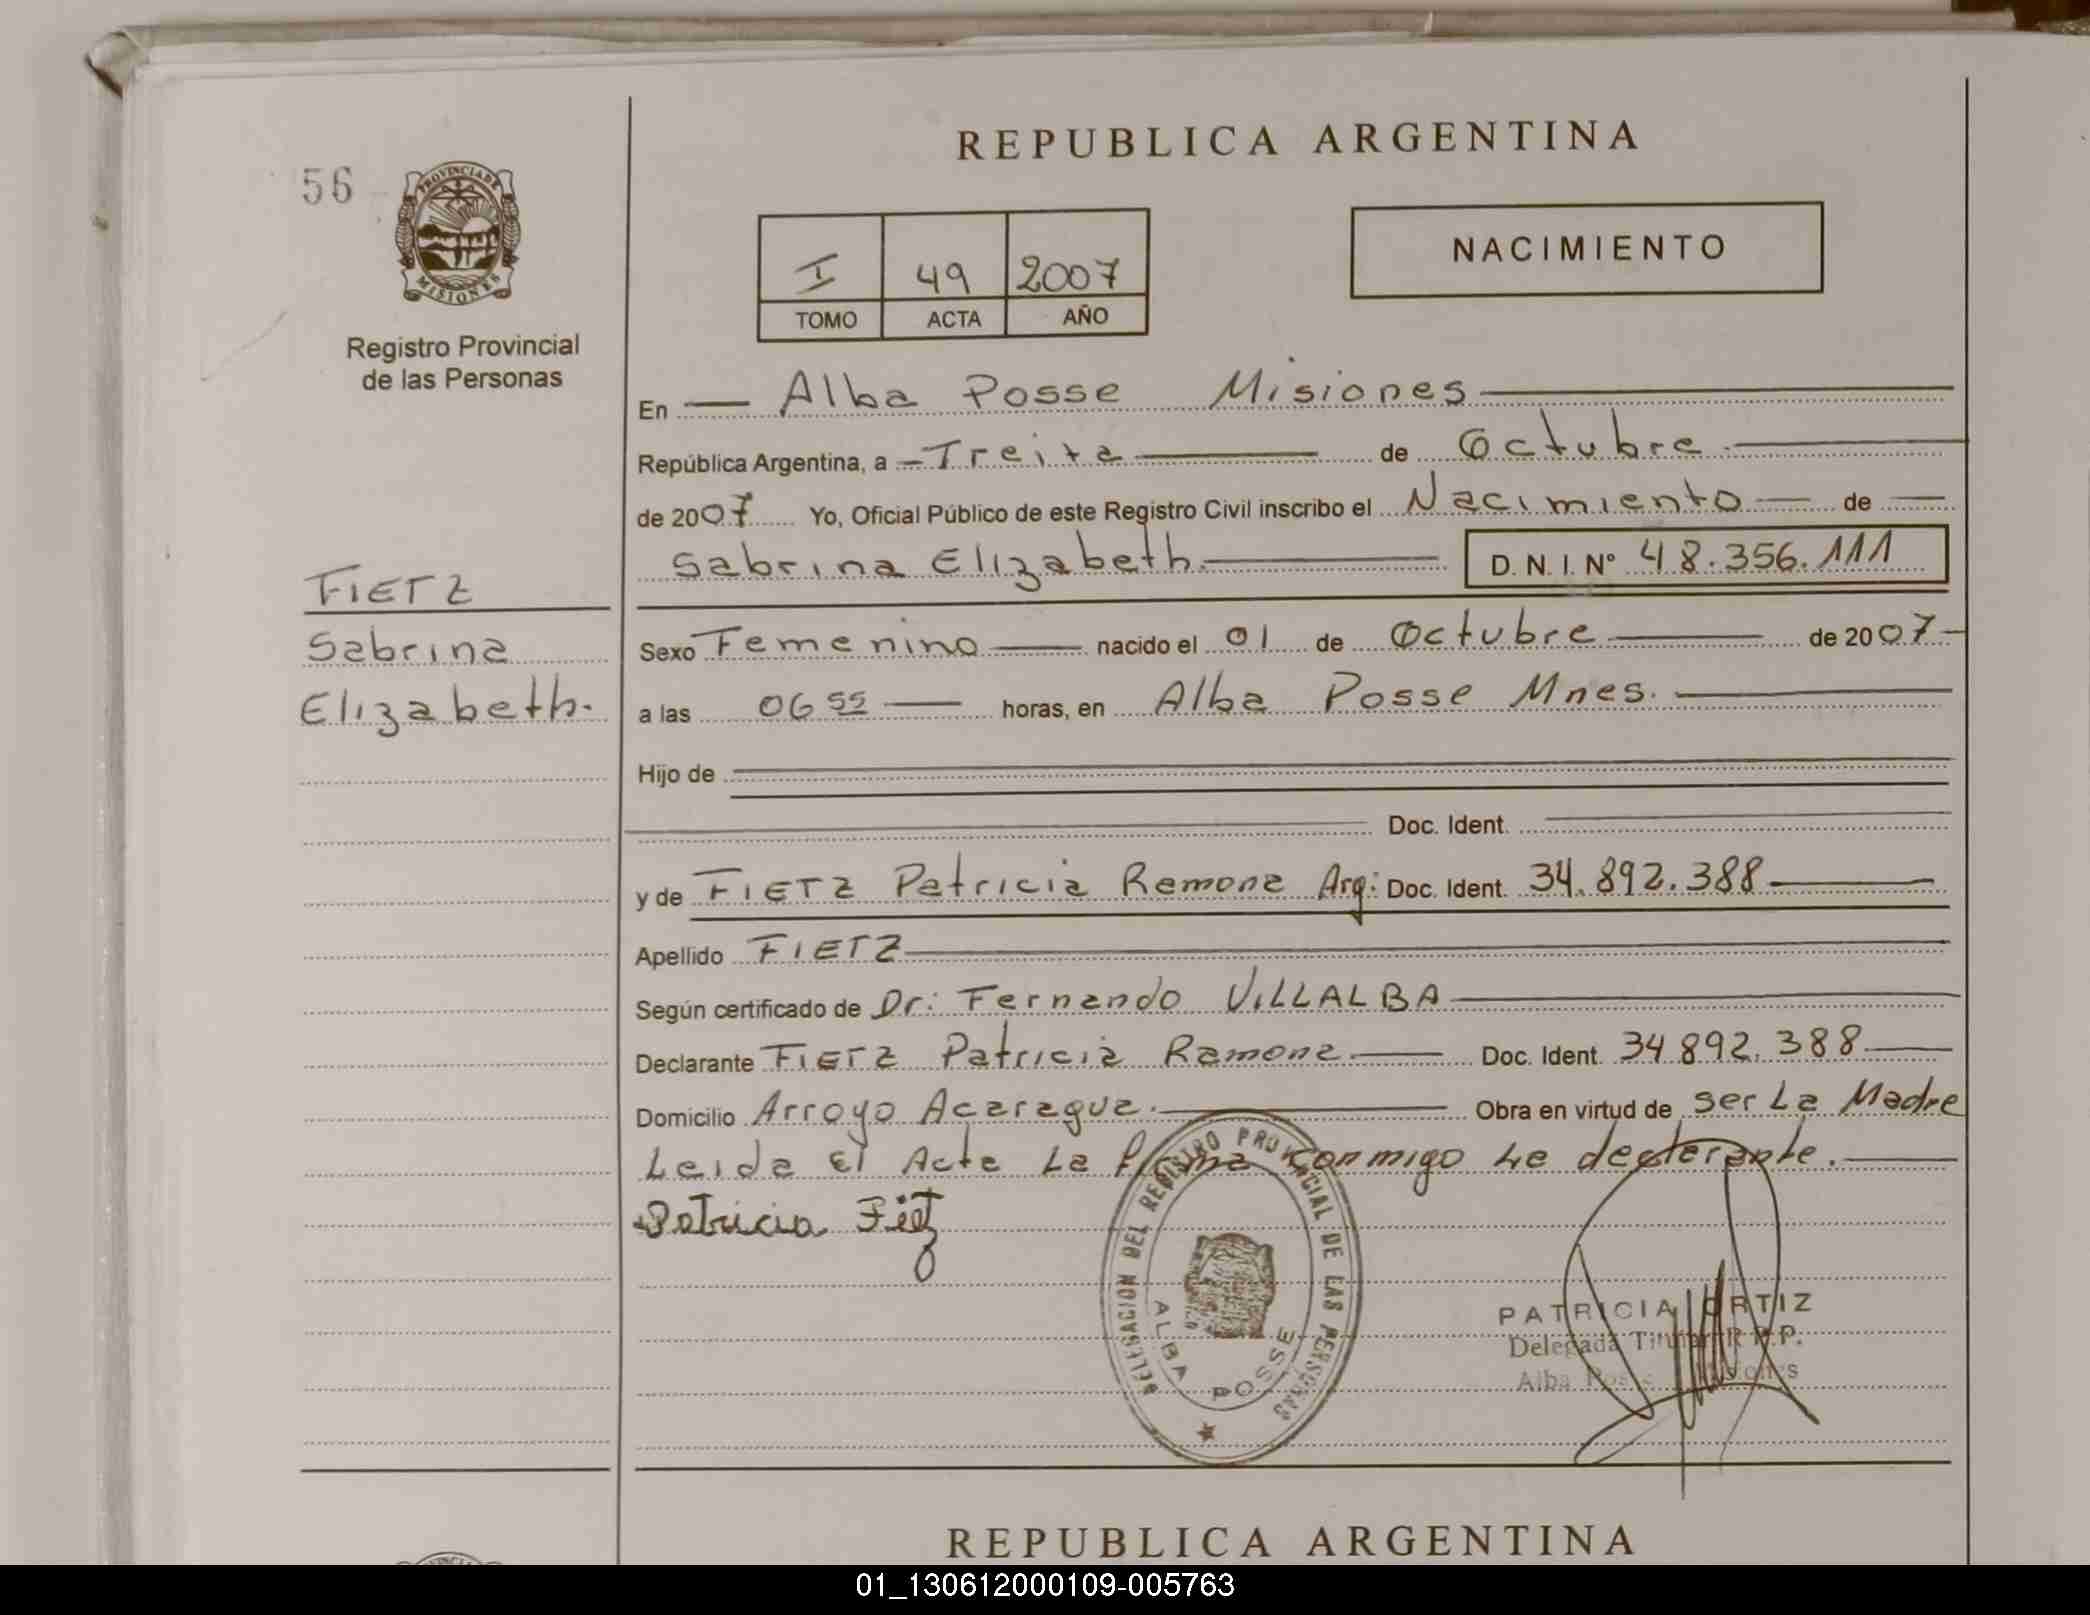 REPUBLICA ARGENTINA
56
PROVINCIA DE MISIONES
Registro Provincial
de las Personas
I 49 2007
TOMO ACTA AÑO
NACIMIENTO
En Alba Posse Misiones
República Argentina, a Treita de Octubre
de 2007 Yo, Oficial Público de este Registro Civil inscribo el Nacimiento de
Sabrina Elizabeth. D. N. I. Nº 48.356.111
FIETZ
Sabrina
Elizabeth.
Sexo Femenino nacido el 01 de Octubre de 2007
a las 06 55 horas, en Alba Posse Mnes.
Hijo de
Doc. Ident.
y de FIETZ Patricia Ramona Arg: Doc. Ident. 34.892.388
Apellido FIETZ
Según certificado de Dr: Fernando VILLALBA
Declarante FIETZ Patricia Ramona Doc. Ident. 34892.388
Domicilio Arroyo Acaragua. Obra en virtud de ser La Madre
Leida El Acta La Firma conmigo La declarante.
Patricia Fietz
DELEGACION DEL REGISTRO PROVINCIAL DE LAS PERSONAS
ALBA POSSE
PATRICIA ORTIZ
Delegada Titular R.P.P.
Alba Posse Misiones
REPUBLICA ARGENTINA
01_130612000109-005763